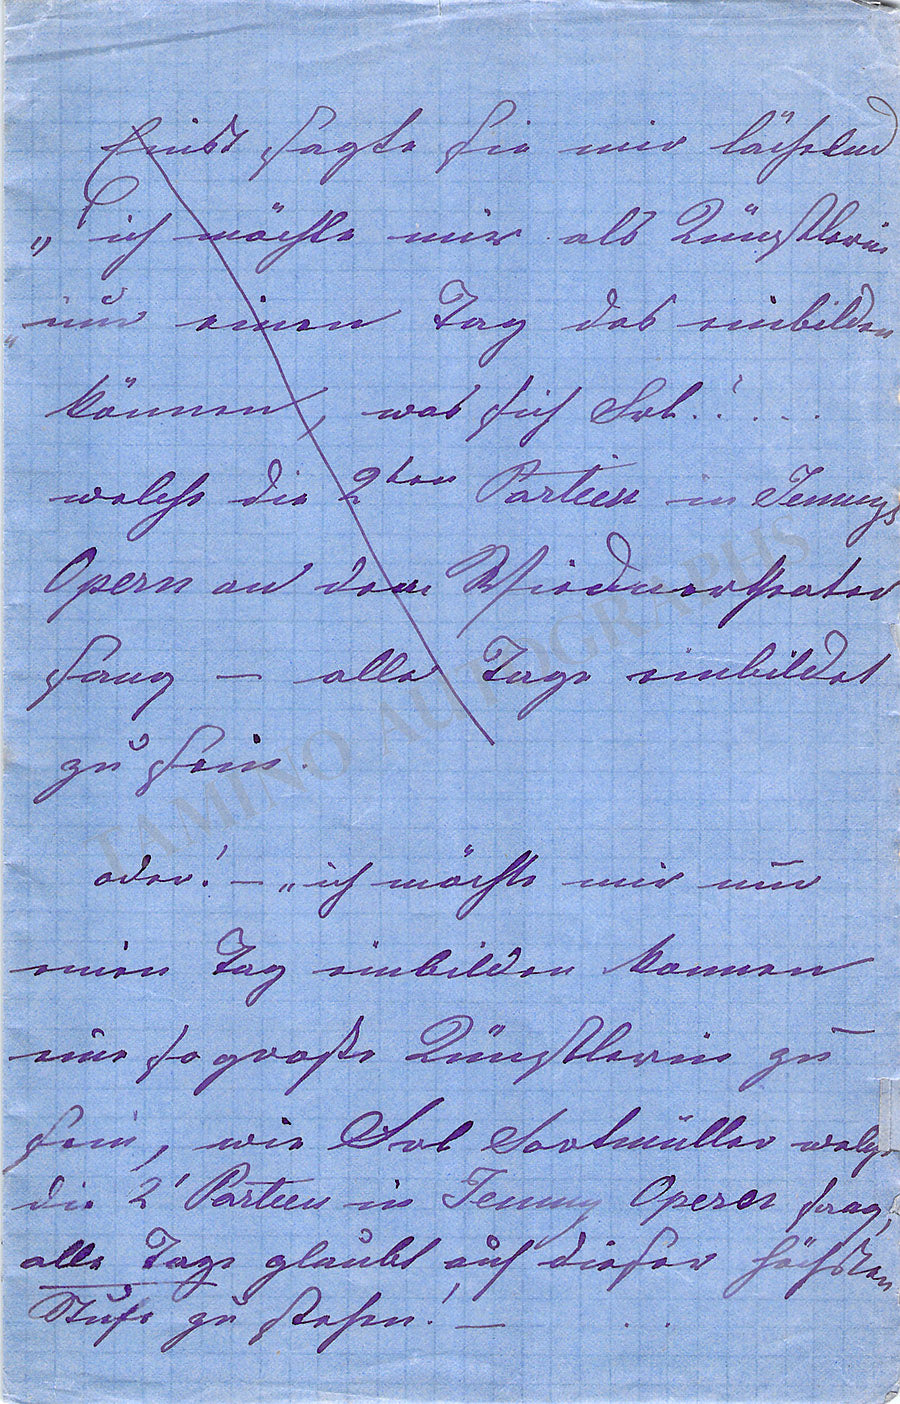 Einst sagte sie mir lächelnd
„ich möchte mir als Künstlerin
nur einen Tag das einbilden
können, was sich Frl.! ....
welche die 2ten Partien in Jennys
Opern an dem Wiednertheater
sang — alle Tage einbildet
zu sein.
oder! — „ich möchte mir nur
einen Tag einbilden konnen
eine so große Künstlerin zu
sein, wie Frl welche
die 2' Partien in Jenny Opern sang,
alle Tage glaubt auf dieser höchsten
Stufe zu stehen! — . .
TAMINO AUTOGRAPHS